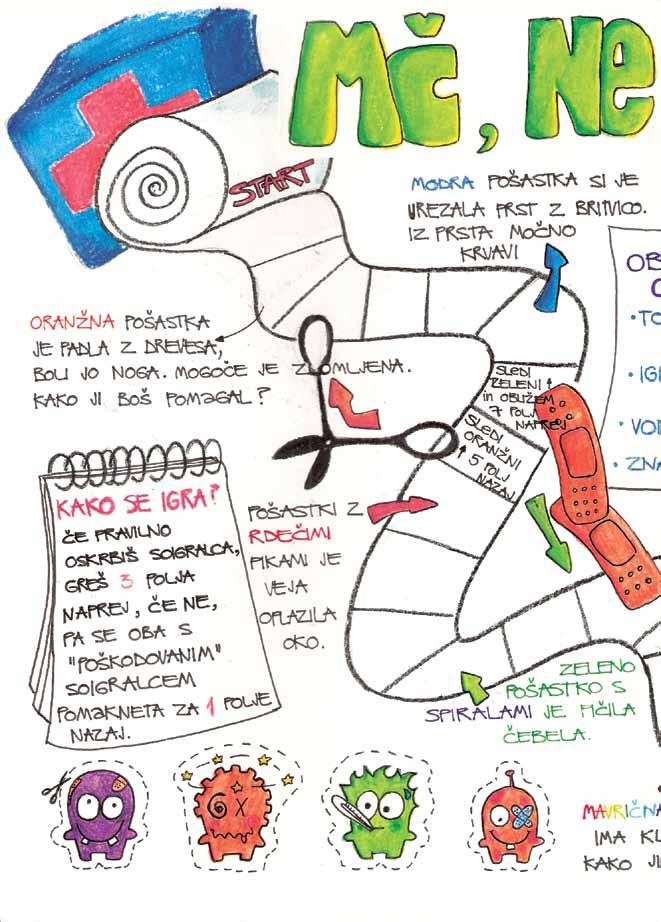 Mč, Ne
START
MODRA POŠASTKA SI JE
UREZALA PRST Z BRITVICO.
IZ PRSTA MOČNO
KRVAVI
OB
• TO
• IGI
• VOD
• ZNA
ORANŽNA POŠASTKA
JE PADLA Z DREVESA,
BOLI JO NOGA. MOGOČE JE ZLOMLJENA.
KAKO JI BOŠ POMAGAL?
SLEDI
ZELENI
in OBLIŽEM
7 POLJ
NAPREJ
SLEDI
ORANŽNI
5 POLJ
NAZAJ
KAKO SE IGRA?
ČE PRAVILNO
OSKRBIŠ SOIGRALCA,
GREŠ 3 POLJA
NAPREJ, ČE NE,
PA SE OBA S
"POŠKODOVANIM"
SOIGRALCEM
POMAKNETA ZA 1 POLJE
NAZAJ.
POŠASTKI Z
RDEČIMI
PIKAMI JE
VEJA
OPLAZILA
OKO.
ZELENO
POŠASTKO S
SPIRALAMI JE PIČILA
ČEBELA.
MAVRIČNA
IMA KL
KAKO JI